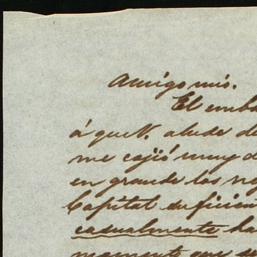 Amigo mio.
El emba
á que V. alude de
me cojió muy d
en grande los ne
Capital deficien
casualmente ha
momento que se